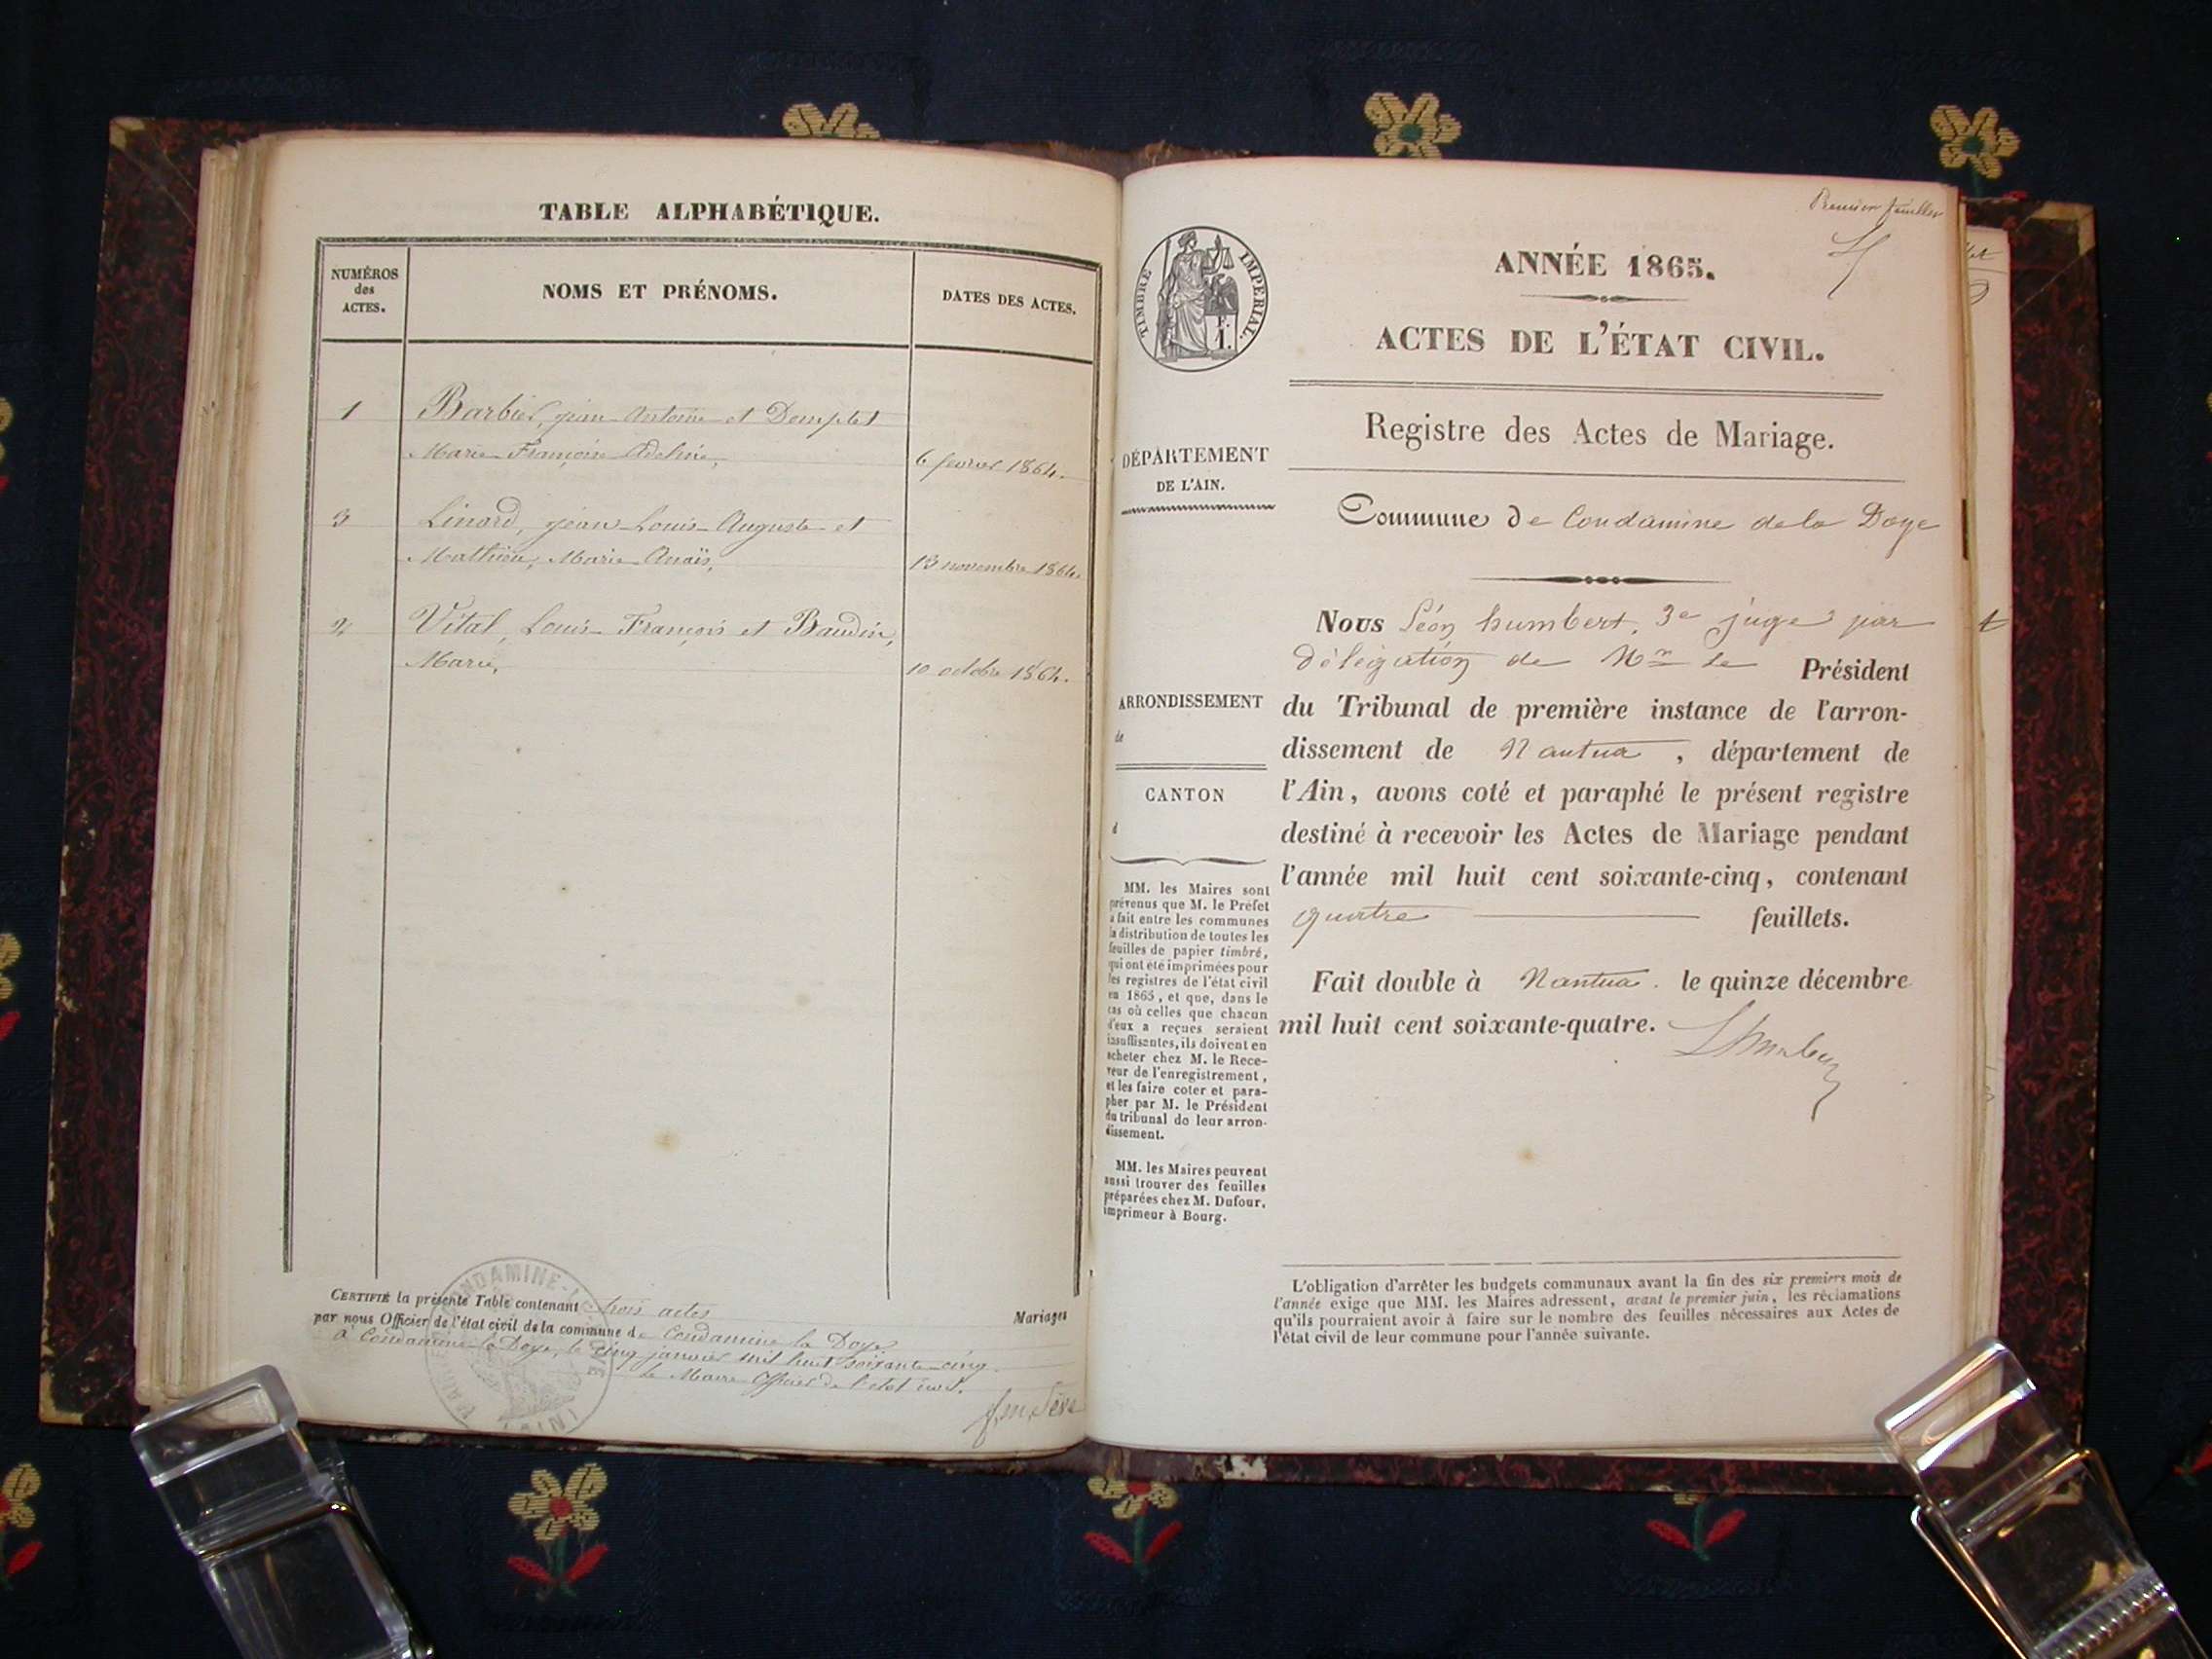 TABLE ALPHABÉTIQUE.
NUMÉROS
des
ACTES.
NOMS ET PRÉNOMS.
DATES DES ACTES.
1 Barbier, jean Antoine et
Marie Françoise Adeline, 6 fevrier 1864.
3 Linard, jean Louis Auguste et
Mathieu, Marie Anaïs, 13 novembre 1864.
2 Vital, Louis François et Baudin,
Marie, 10 octobre 1864.
CERTIFIÉ la présente Table contenant trois actes Mariages
par nous Officier de l'état civil de la commune de Condamine la Doye
à Condamine la Doye, le cinq janvier mil huit soixante-cinq.
Le Maire Officier de l'état civil.
Premier feuillet
TIMBRE IMPÉRIAL.
ANNÉE 1865.
ACTES DE L'ÉTAT CIVIL.
Registre des Actes de Mariage.
DÉPARTEMENT
DE L'AIN.
Commune de Condamine de la Doye
Nous Léon humbert, 3e juge par
délégation de Mr le Président
du Tribunal de première instance de l'arron-
dissement de Nantua, département de
l'Ain, avons coté et paraphé le présent registre
destiné à recevoir les Actes de Mariage pendant
l'année mil huit cent soixante-cinq, contenant
quatre feuillets.
Fait double à Nantua. le quinze décembre
mil huit cent soixante-quatre.
ARRONDISSEMENT
de
CANTON
d
MM. les Maires sont
prévenus que M. le Préfet
a fait entre les communes
la distribution de toutes les
feuilles de papier timbré,
qui ont été imprimées pour
les registres de l'état civil
en 1865, et que, dans le
cas où celles que chacun
d'eux a reçues seraient
insuffisantes, ils doivent en
acheter chez M. le Rece-
veur de l'enregistrement,
et les faire coter et para-
pher par M. le Président
du tribunal de leur arron-
dissement.
MM. les Maires peuvent
aussi trouver des feuilles
préparées chez M. Dufour,
imprimeur à Bourg.
L'obligation d'arrêter les budgets communaux avant la fin des six premiers mois de
l'année exige que MM. les Maires adressent, avant le premier juin, les réclamations
qu'ils pourraient avoir à faire sur le nombre des feuilles nécessaires aux Actes de
l'état civil de leur commune pour l'année suivante.